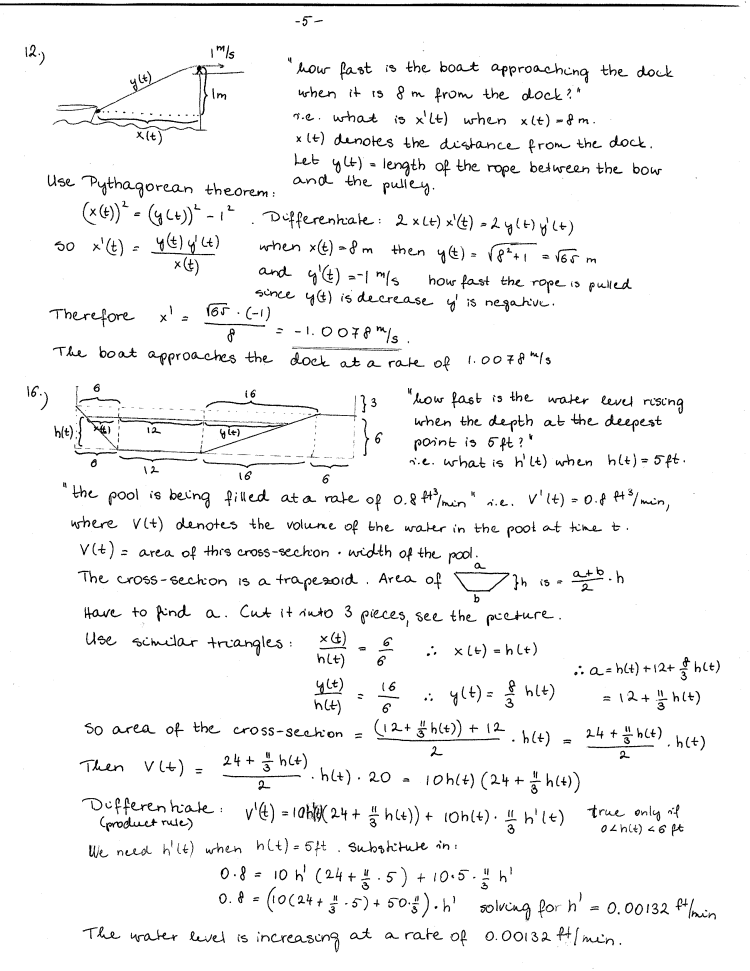 -5-
12.)
1 m/s
y(t)
1m
x(t)
"how fast is the boat approaching the dock
when it is 8 m from the dock?"
i.e. what is x'(t) when x(t) = 8 m.
x(t) denotes the distance from the dock.
Let y(t) = length of the rope between the bow
and the pulley.
Use Pythagorean theorem:
(x(t))² = (y(t))² - 1². Differentiate: 2 x(t) x'(t) = 2 y(t) y'(t)
so x'(t) = y(t) y'(t) / x(t)
when x(t) = 8 m then y(t) = √(8²+1) = √65 m
and y'(t) = -1 m/s how fast the rope is pulled
since y(t) is decrease y' is negative.
Therefore x' = √65 · (-1) / 8 = -1.0078 m/s.
The boat approaches the dock at a rate of 1.0078 m/s
16.)
6
16
3
h(t)
x(t)
12
y(t)
6
6
12
16
6
"how fast is the water level rising
when the depth at the deepest
point is 5 ft?"
i.e. what is h'(t) when h(t) = 5 ft.
"the pool is being filled at a rate of 0.8 ft³/min" i.e. V'(t) = 0.8 ft³/min,
where V(t) denotes the volume of the water in the pool at time t.
V(t) = area of this cross-section · width of the pool.
The cross-section is a trapezoid. Area of a b }h is = a+b / 2 · h
Have to find a. Cut it into 3 pieces, see the picture.
Use similar triangles: x(t)/h(t) = 6/6 ∴ x(t) = h(t)
∴ a = h(t) + 12 + 8/3 h(t)
y(t)/h(t) = 16/6 ∴ y(t) = 8/3 h(t)
= 12 + 11/3 h(t)
so area of the cross-section = (12 + 11/3 h(t)) + 12 / 2 · h(t) = 24 + 11/3 h(t) / 2 · h(t)
Then V(t) = 24 + 11/3 h(t) / 2 · h(t) · 20 = 10h(t) (24 + 11/3 h(t))
Differentiate: V'(t) = 10h'(t)(24 + 11/3 h(t)) + 10h(t) · 11/3 h'(t) true only if
(product rule) 0 < h(t) < 6 ft
We need h'(t) when h(t) = 5 ft. Substitute in:
0.8 = 10 h' (24 + 11/3 · 5) + 10·5 · 11/3 h'
0.8 = (10(24 + 11/3 · 5) + 50·11/3) · h' solving for h' = 0.00132 ft/min
The water level is increasing at a rate of 0.00132 ft/min.